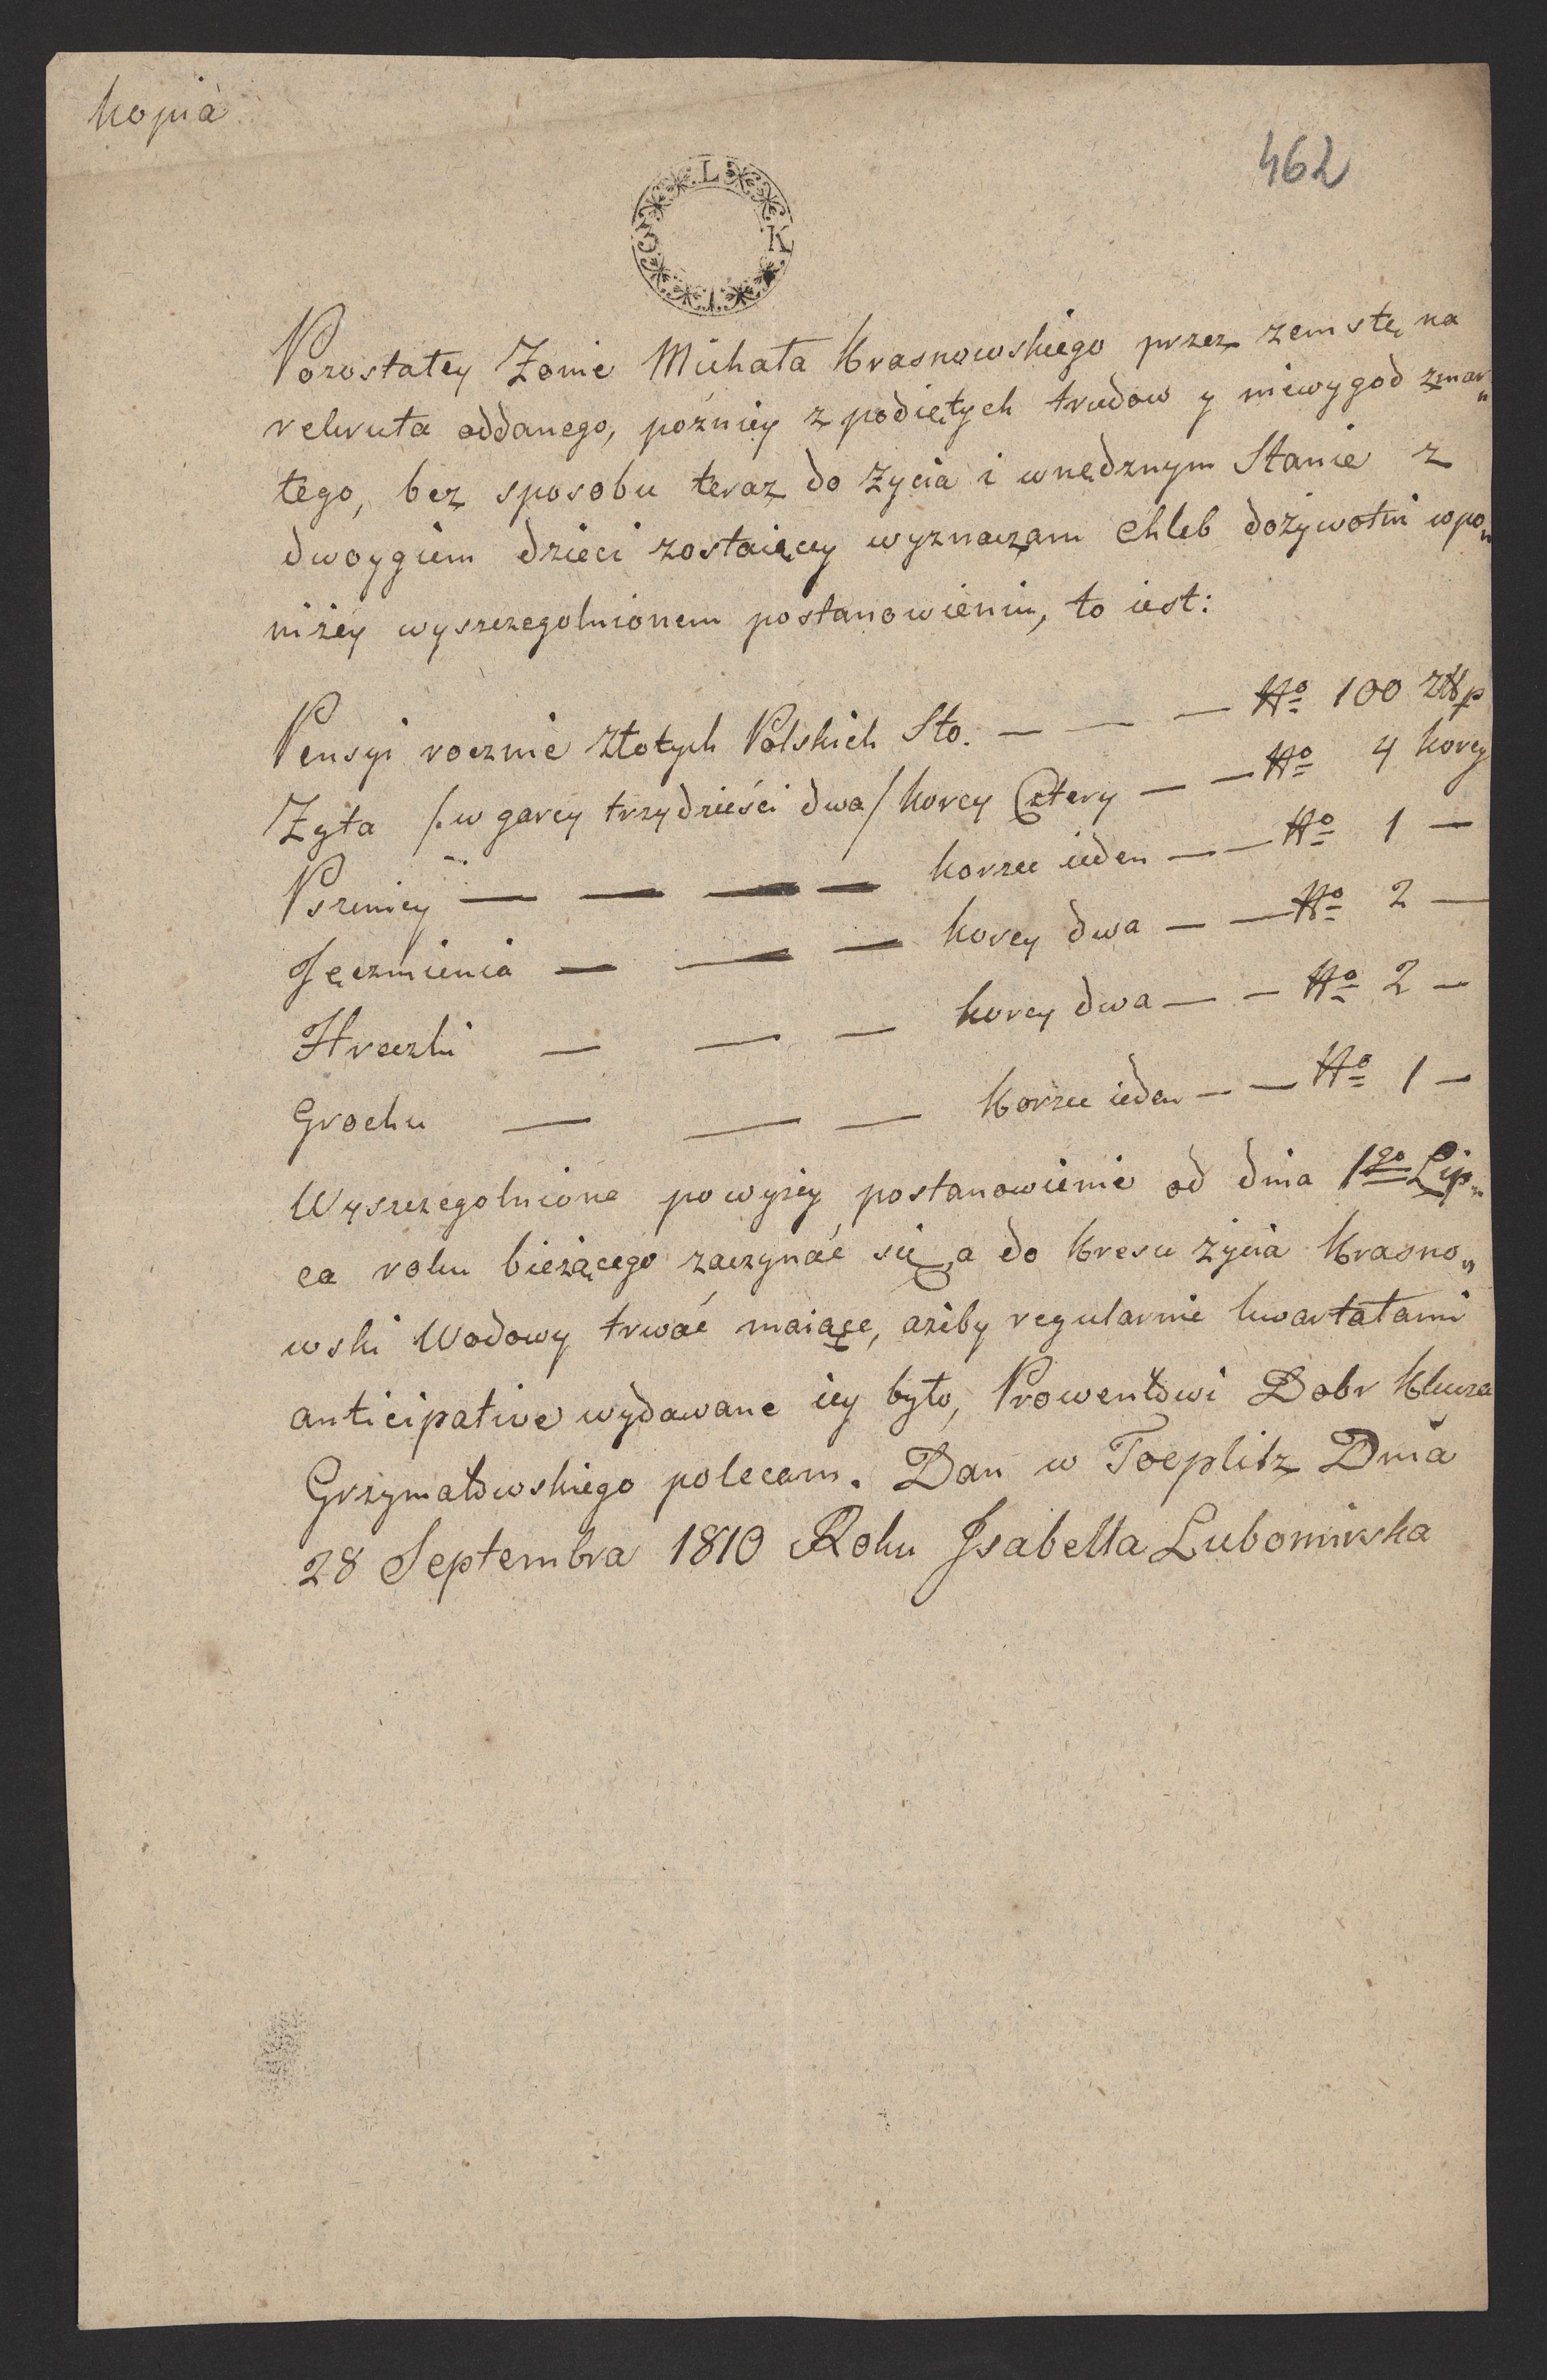 kopia
462
L
3 K
1
Pozostałey Żonie Michała Krasnowskiego przez zemstę na
rekruta oddanego, pozniey z podiętych trudow y niewygod zmar„
łego, bez sposobu teraz do życia i w nędznym Stanie z
dwoygiem dzieci zostaiącey wyznaczam Chleb dożywotni w po„
niżey wyszczegolnionem postanowieniu, to iest:
Pensyi rocznie Złotych Polskich Sto. — — — No 100 złp
Zyta /: w garcy trzydzieści dwa / korcy Cztery — — No 4 korcy
Pszenicy — — — — korzec ieden — — No 1 —
Jęczmienia — — — korcy dwa — — No 2 —
Hreczki — — — korcy dwa — — No 2 —
Grochu — — — korzec ieden — — No 1 —
Wyszczegolnione powyżey postanowienie od dnia 1go Lip„
ca roku bieżącego zaczynać się, a do kresu życia Krasno„
wski Wdowy trwać maiące, ażeby regularnie kwartałami
anticipative wydawane iey było, Prowentowi Dobr Klucza
Grzymałowskiego polecam. Dan w Toeplitz Dnia
28 Septembra 1810 Roku Isabella Lubomirska